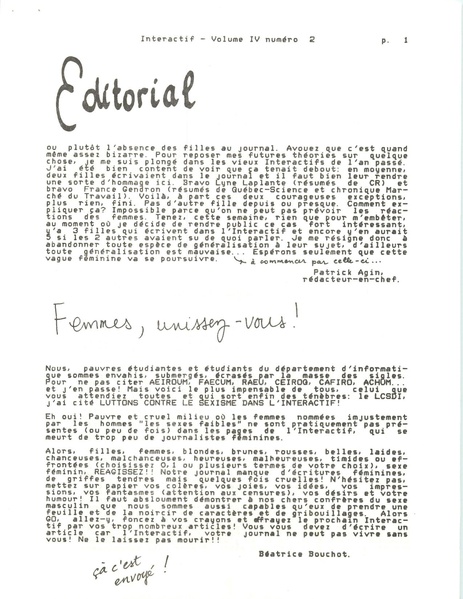 Interactif - Volume IV numéro 2 p. 1
Editorial
ou plutôt l'absence des filles au journal. Avouez que c'est quand
même assez bizarre. Pour reposer mes futures théories sur quelque
chose, je me suis plongé dans les vieux Interactifs de l'an passé.
J'ai été bien content de voir que ça tenait debout: en moyenne,
deux filles écrivaient dans le journal et il faut bien leur rendre
une sorte d'hommage ici. Bravo Lyne Laplante (résumés de CR) et
bravo France Gendron (résumés de Québec-Science et chronique Mar-
ché du Travail). Voilà, à part ces deux courageuses exceptions,
plus rien, fini. Pas d'autre fille depuis ou presque. Comment ex-
pliquer ça? Impossible parce qu'on ne peut pas prévoir les réac-
tions des femmes. Tenez, cette semaine, rien que pour m'embêter,
au moment où je décide de rendre public ce cas fort intéressant,
y'a 3 filles qui écrivent dans l'Interactif et encore y'en aurait
3 si les 2 autres avaient su de quoi parler. Je me résigne donc à
abandonner toute espèce de généralisation à leur sujet, d'ailleurs
toute généralisation est mauvaise... Espérons seulement que cette
vague féminine va se poursuivre.
à commencer par celle-ci...
Patrick Agin,
rédacteur-en-chef.
Femmes, unissez-vous!
Nous, pauvres étudiantes et étudiants du département d'informati-
que sommes envahis, submergés, écrasés par la masse des sigles.
Pour ne pas citer AEIROUM, FAECUM, RAEU, CEIROG, CAFIRO, ACHUM...
et j'en passe! Mais voici le plus impensable de tous, celui que
vous attendiez toutes et qui sort enfin des ténèbres: le LCSDI,
j'ai cité LUTTONS CONTRE LE SEXISME DANS L'INTERACTIF!
Eh oui! Pauvre et cruel milieu où les femmes nommées injustement
par les hommes "les sexes faibles" ne sont pratiquement pas pré-
sentes (ou peu de fois) dans les pages de l'Interactif, qui se
meurt de trop peu de journalistes féminines.
Alors, filles, femmes, blondes, brunes, rousses, belles, laides,
chanceuses, malchanceuses, heureuses, malheureuses, timides ou ef-
frontées (choisissez 0,1 ou plusieurs termes de votre choix), sexe
féminin, REAGISSEZ!! Notre journal manque d'écritures féminines,
de griffes tendres mais quelques fois cruelles! N'hésitez pas,
mettez sur papier vos colères, vos joies, vos idées, vos impres-
sions, vos fantasmes (attention aux censures), vos désirs et votre
humour! Il faut absolument démontrer à nos chers confrères du sexe
masculin que nous sommes aussi capables qu'eux de prendre une
feuille et de la noircir de caractères et de gribouillages. Alors
GO, allez-y, foncez à vos crayons et effrayez le prochain Interac-
tif par vos trop nombreux articles! Vous vous devez d'écrire un
article car l'Interactif, votre journal ne peut pas vivre sans
vous! Ne le laissez pas mourir!!
Béatrice Bouchot.
çà c'est
envoyé !